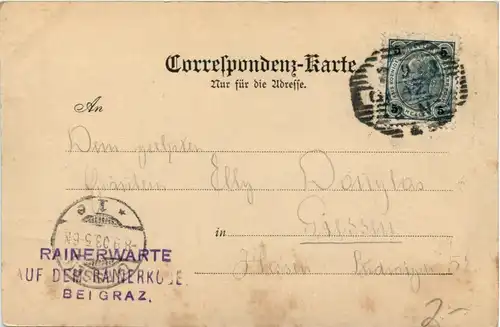 Correspondenz-Karte
Nur für die Adresse.
An
5 5
5 5
Dem geehrten
Fräulein Elly Douglas
Giessen
in
Hessen
RAINERWARTE
AUF DEM RAINERKOGEL
BEI GRAZ.
2-